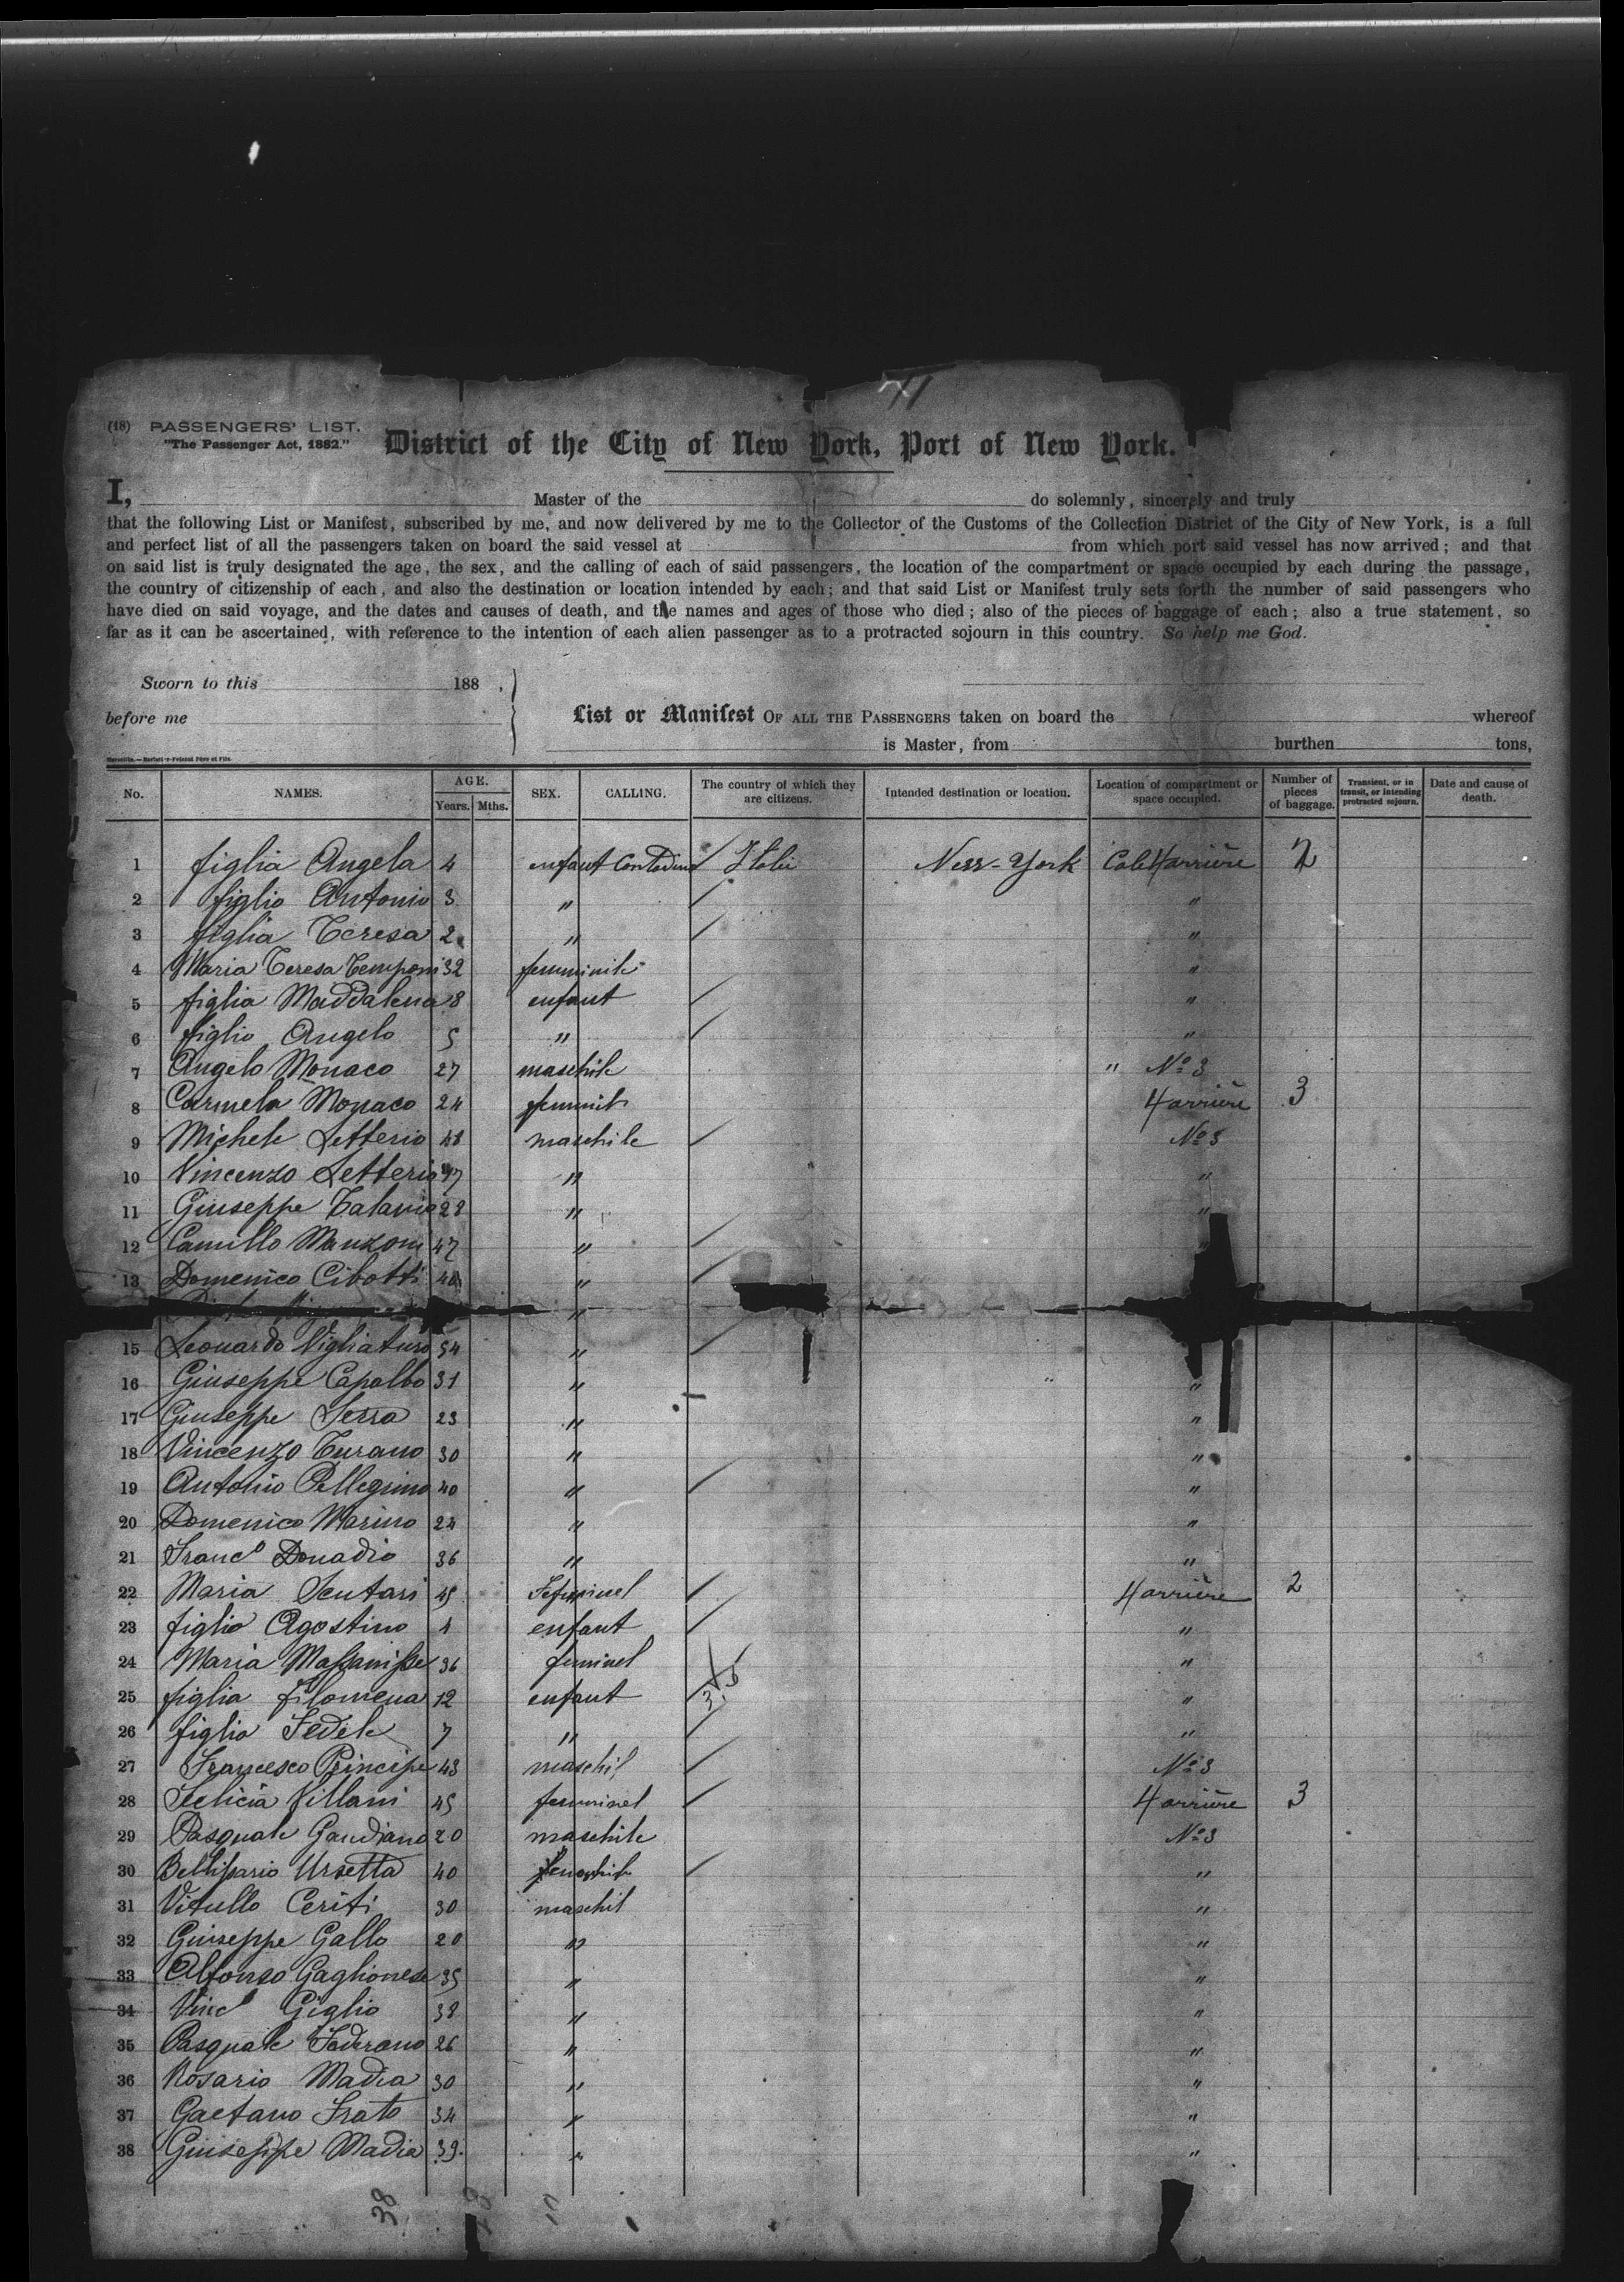 71
(18) PASSENGERS' LIST.
"The Passenger Act, 1882."
District of the City of New York, Port of New York.
I, Master of the do solemnly, sincerely and truly
that the following List or Manifest, subscribed by me, and now delivered by me to the Collector of the Customs of the Collection District of the City of New York, is a full
and perfect list of all the passengers taken on board the said vessel at from which port said vessel has now arrived; and that
on said list is truly designated the age, the sex, and the calling of each of said passengers, the location of the compartment or space occupied by each during the passage,
the country of citizenship of each, and also the destination or location intended by each; and that said List or Manifest truly sets forth the number of said passengers who
have died on said voyage, and the dates and causes of death, and the names and ages of those who died; also of the pieces of baggage of each; also a true statement, so
far as it can be ascertained, with reference to the intention of each alien passenger as to a protracted sojourn in this country. So help me God.
Sworn to this 188 ,
before me
List or Manifest OF ALL THE PASSENGERS taken on board the whereof
is Master, from burthen tons,
No. NAMES. AGE. Years. Mths. SEX. CALLING. The country of which they are citizens. Intended destination or location. Location of compartment or space occupied. Number of pieces of baggage. Transient, or in transit, or intending protracted sojourn. Date and cause of death.
1 figlia Angela 4 enfant Italie New-York Cale 4 arrière 2
2 figlio Antonio 3 " "
3 figlia Teresa 2 " "
4 Maria Teresa Temponi 32 femminile "
5 figlia Maddalena 8 enfant "
6 figlio Angelo 5 " "
7 Angelo Monaco 27 maschile " No 3
8 Carmela Monaco 24 4 arrière 3
9 Michele Letterio 48 maschile No 3
10 Vincenzo Letterio " "
11 Giuseppe 28 " "
12 Camillo Manzoni 47 "
13 Domenico Cibotti "
"
15 Leonardo Vigliaturo 54 "
16 Giuseppe Capalbo 31 " "
17 Giuseppe Serra 23 " "
18 Vincenzo Turano 30 " "
19 Antonio Pellegrino 40 " "
20 Domenico Marino 24 " "
21 Franco Donadio 36 " "
22 Maria Scutari 45 4 arrière 2
23 figlio Agostino 4 enfant "
24 Maria 36 feminel "
25 figlia Filomena 12 enfant "
26 figlio Fedele 7 " "
27 Francesco Principe 43 maschil No 3
28 Felicia Villani 45 feminel 4 arrière 3
29 Pasquale Gaudiano 20 maschile No 3
30 Bellisario Ursetta 40 "
31 Vitullo Ceriti 30 maschil "
32 Giuseppe Gallo 20 " "
33 Alfonso Gaglionese 35 " "
34 Vinco Giglio 38 " "
35 Pasquale 26 " "
36 Rosario Madia 30 " "
37 Gaetano Frato 34 " "
38 Giuseppe Madia 39 " "
38